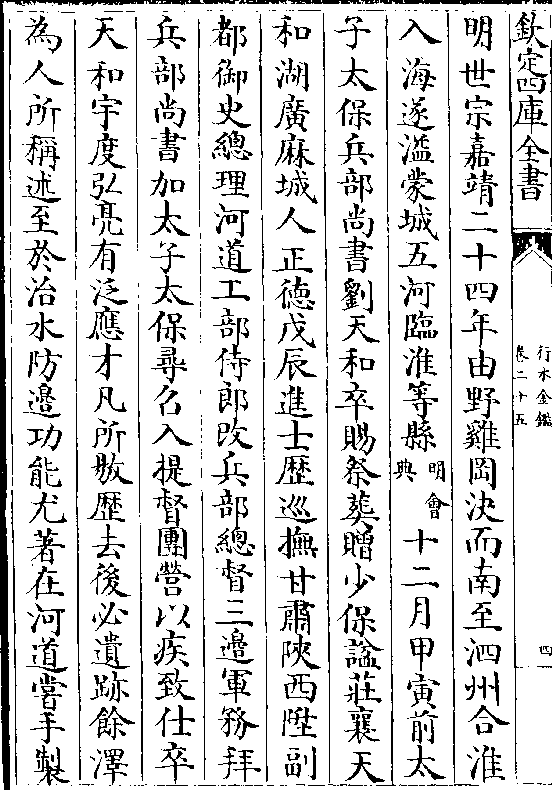 欽定四庫全書
行水金鑑
卷二十五
四
明世宗嘉靖二十四年由野雞岡決而南至泗州合淮
入海遂溢蒙城五河臨淮等縣明會典十二月甲寅前太
子太保兵部尚書劉天和卒賜祭葬贈少保謚莊襄天
和湖廣麻城人正德戊辰進士歴巡撫甘肅陝西陞副
都御史總理河道工部侍郎改兵部總督三邉軍務拜
兵部尚書加太子太保尋召入提督團營以疾致仕卒
天和宇度弘亮有泛應才凡所敭歴去後必遺跡餘澤
為人所稱述至於治水防邉功能尤著在河道嘗手製